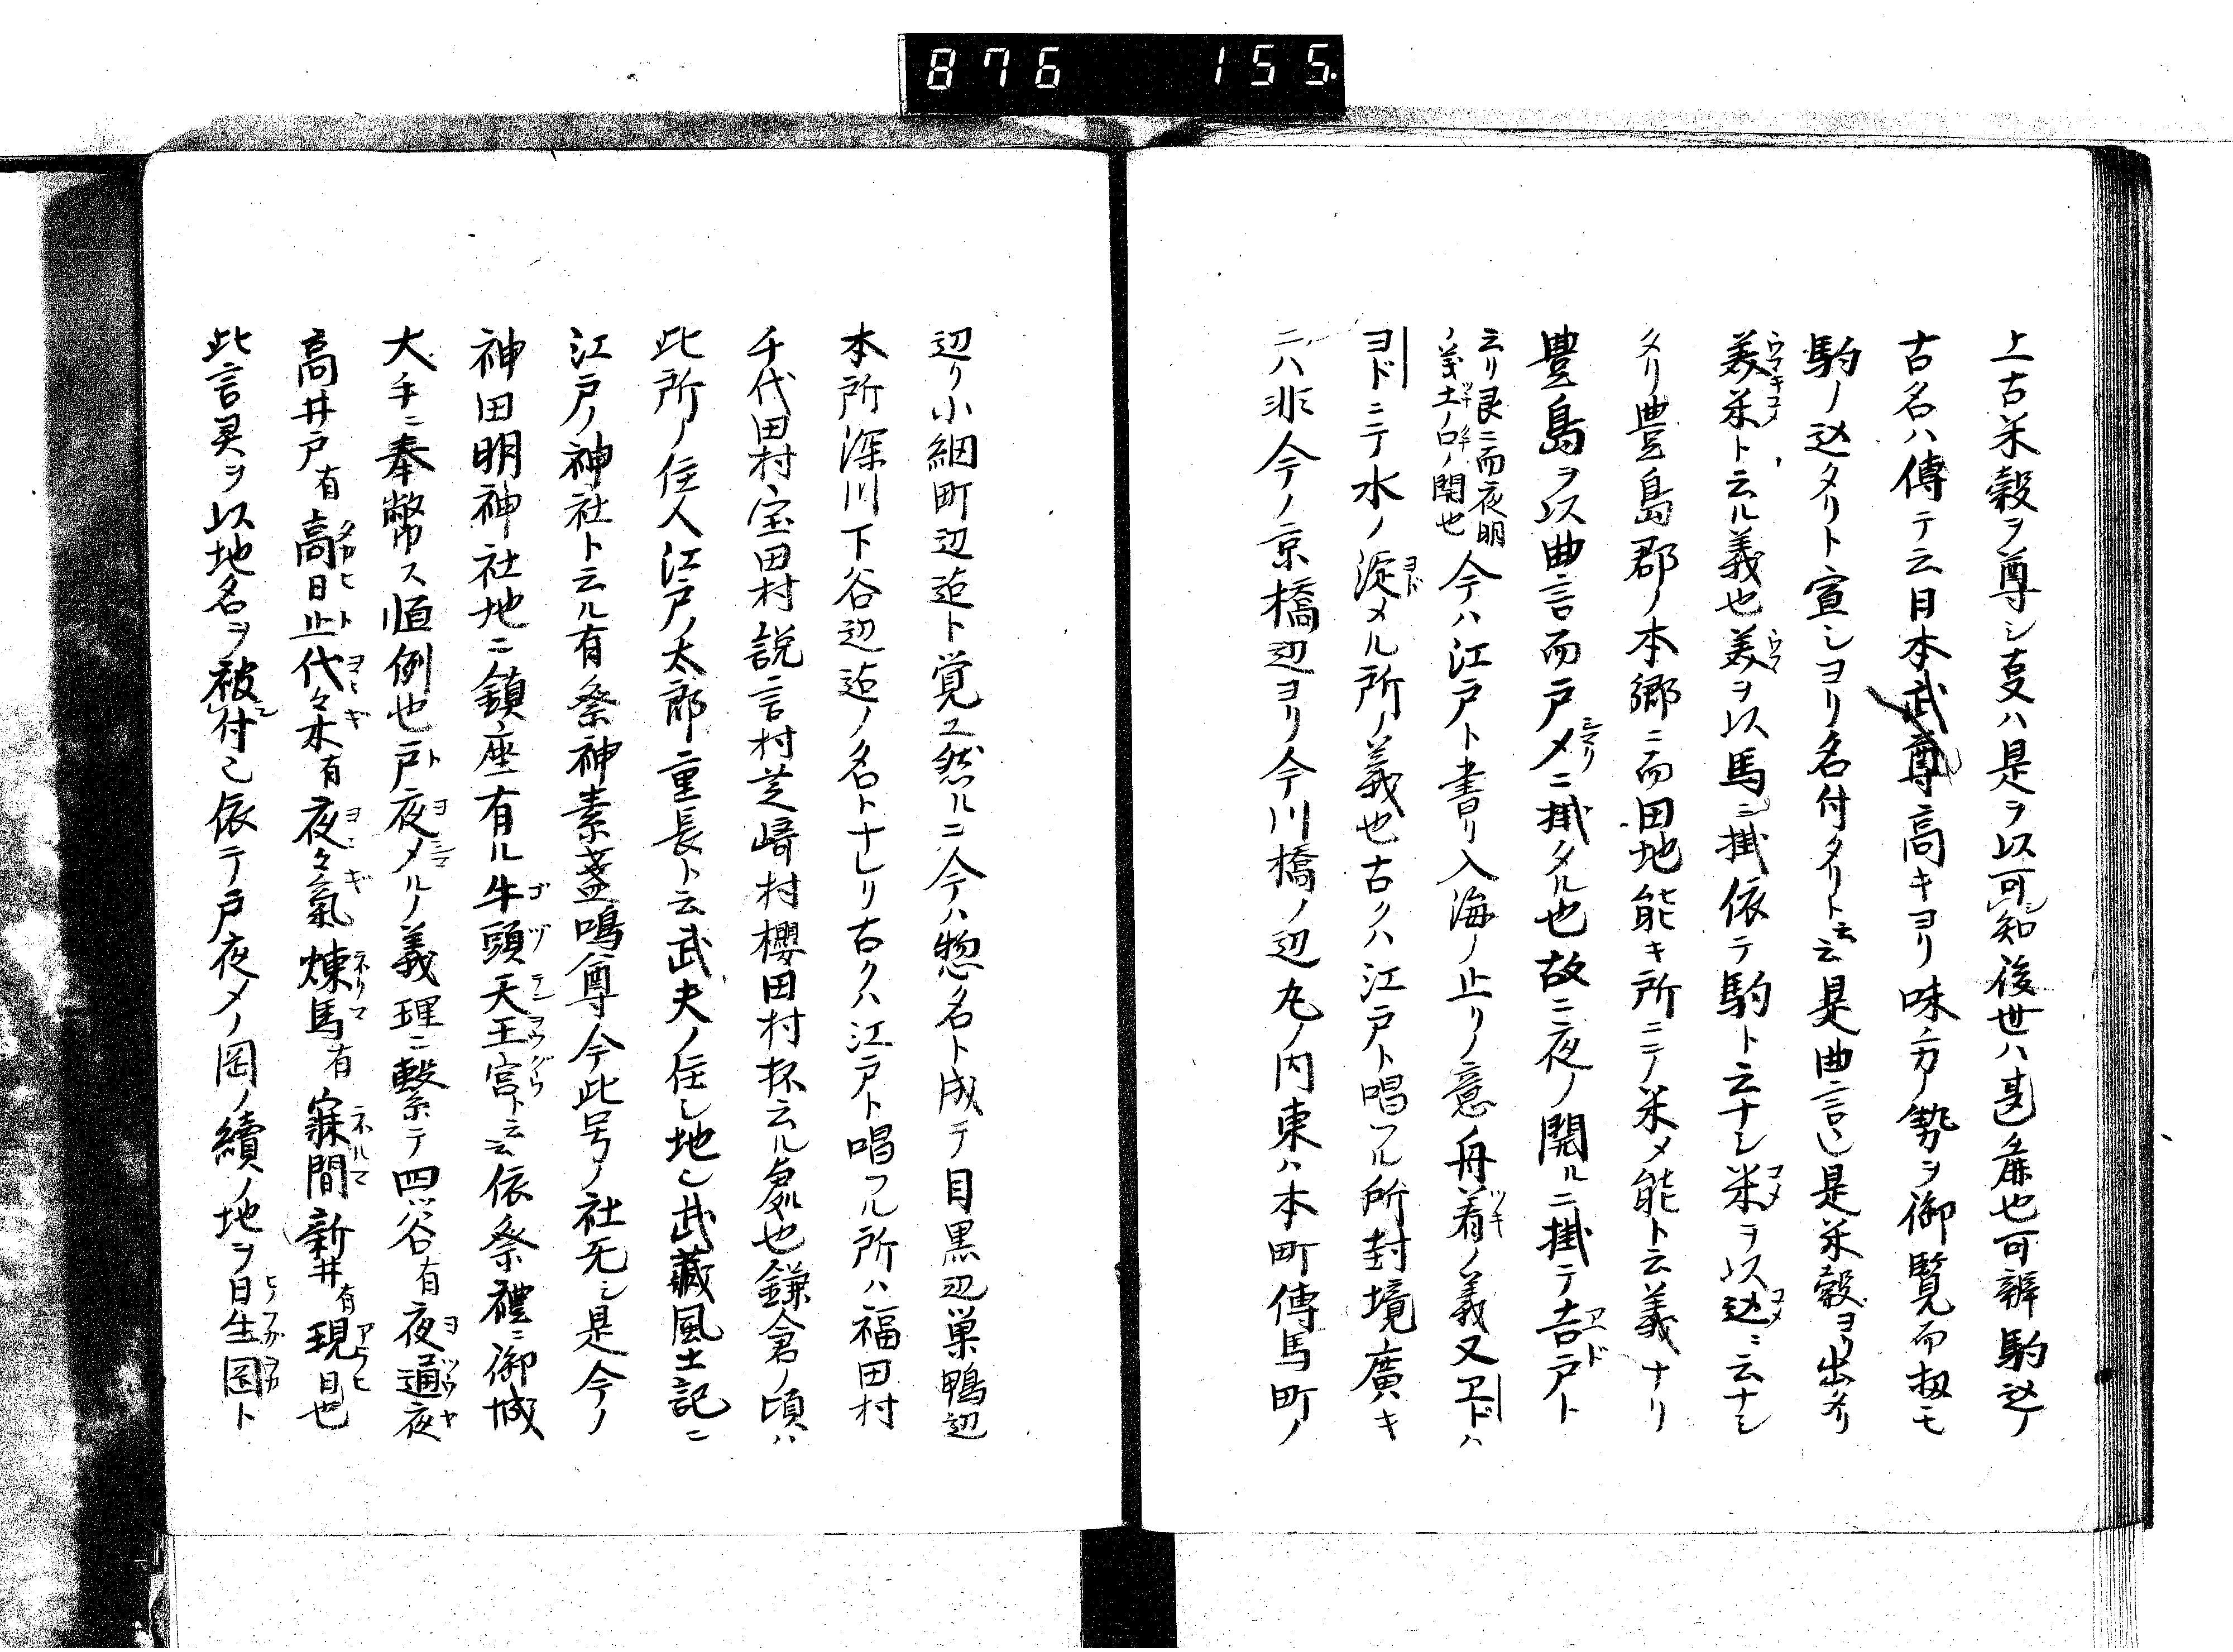 876 155.
上古米穀ヲ尊シ支ハ是ヲ以可知後世ハ甚タ麁也可辨駒込ノ
古名ハ傳テ云日本武尊高キヨリ味ノ方ノ勢ヲ御覧而扨モ
駒ノ込タリト宣シヨリ名付タリト云云是曲言也是米穀ヨリ出タリ
美米ト云ル義也美ヲ以馬ニ掛依テ駒ト云ナシ米ヲ以込ニ云ナシ
タリ豊島郡ノ本郷ニ而田地能キ所ニテ米メ能ト云義ナリ
豊島ヲ以曲言而戸メニ掛タル也故ニ夜ノ開ルニ掛テ吉戸ト
云リ艮ニ而夜明
ノ義土ノ口ノ開也
今ハ江戸ト書リ入海ノ止リノ意舟着ノ義又ヱドハ
ヨドニテ水ノ淀メル所ノ義也古クハ江戸ト唱フル所封境廣キ
ニハ非今ノ京橋辺ヨリ今川橋ノ辺丸ノ内東ハ本町傳馬町ノ
辺リ小細町辺迠ト覚ユ然ルニ今ハ惣名ト成テ目黒辺巣鴨辺
本所深川下谷辺迠ノ名トナレリ古クハ江戸ト唱フル所ハ福田村
千代田村宝田村説言村芝﨑村櫻田村杯云ル処也鎌倉ノ頃ハ
此所ノ住人江戸ノ太郎重長ト云武夫ノ住シ地也武藏風土記ニ
江戸ノ神社ト云ル有祭神素盞鳴尊今此号ノ社无シ是今ノ
神田明神社地ニ鎮座有ル牛頭天王宮ト云云依祭禮ニ御城
大手ニ奉幣ス恒例也戸夜メルノ義理ニ繋テ四ツ谷有夜通夜
高井戸有高日止代々木有夜々氣煉馬有寐間新井有現日也
此言灵ヲ以地名ヲ被付也依テ戸夜メノ岡ノ續ノ地ヲ日生岡ト